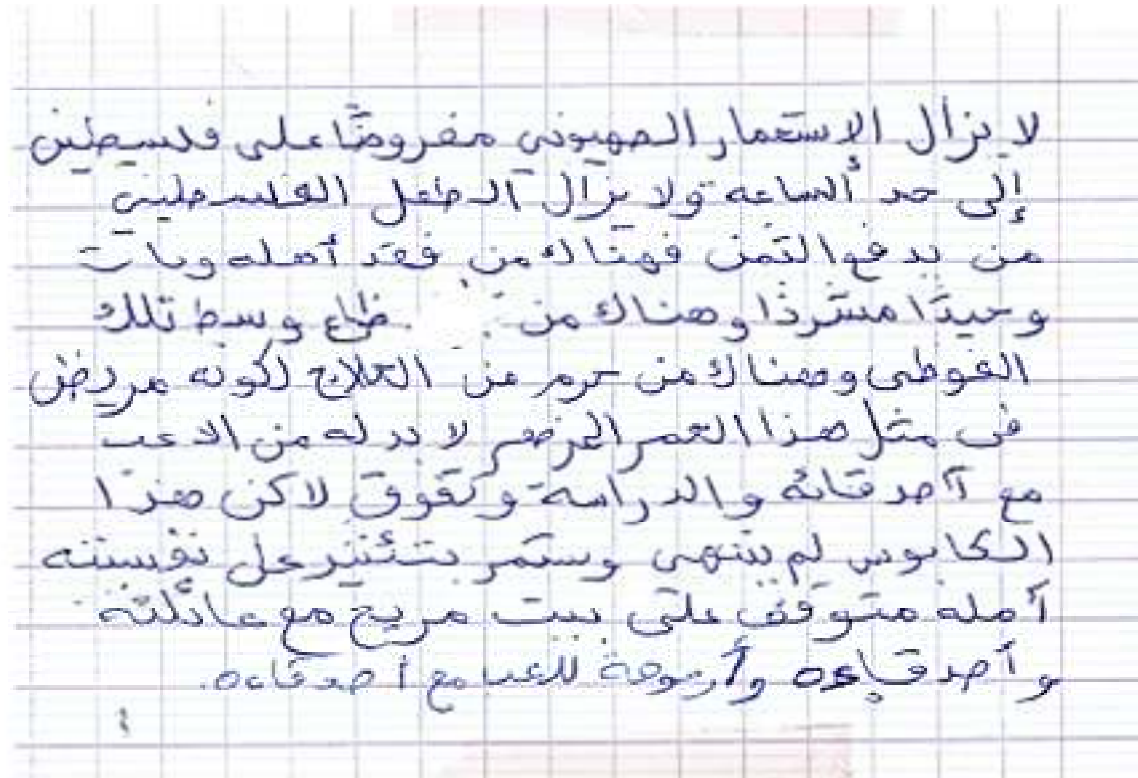 لا يزال الإستعمار الصهيوني مفروضًا على فلسطين
إلى حد الساعة ولا يزال الطفل الفلسطيني
من يدفع الثمن فهناك من فقد أهله وبات
وحيدًا مشردًا وهناك من ضاع وسط تلك
الفوظى وهناك من حرم من العلاج لكونه مريض
في مثل هذا العمر لا بد له من العب
مع أصدقائه والدراسة وتفوق لاكن هذا
الكابوس لم ينتهي وستمر بتئثير على نفسيته
أمله متوقف على بيت مريح مع عائلته
وأصدقاءه وأرجوحة للعب مع أصدقاءه.